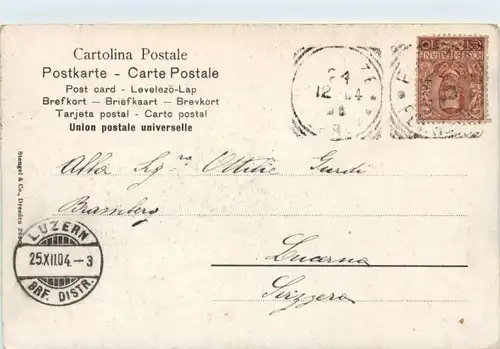 Cartolina Postale
Postkarte - Carte Postale
Post card - Levelezö-Lap
Brefkort — Briefkaart — Brevkort
Tarjeta postal - Carto postal
Union postale universelle
24
12-04
Alla Sg.ra Ottilie Gurdi
Bramberg
Lucerna
Svizzera
Stengel & Co., Dresden
LUZERN
25.XII.04.-3
BRF. DISTR.